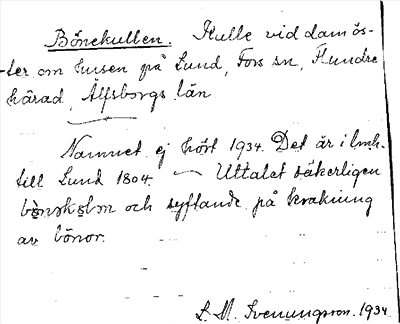 Bönekullen. Kulle vid dam ös-
ter om husen på Lund, Fors sn, Flundre
härad, Älfsborgs län
Namnet ej hört 1934. Det är i lmh.
till Lund 1804. — Uttalet säkerligen
och syftande på krakning
av bönor.
S. M. Svenungsson. 1934